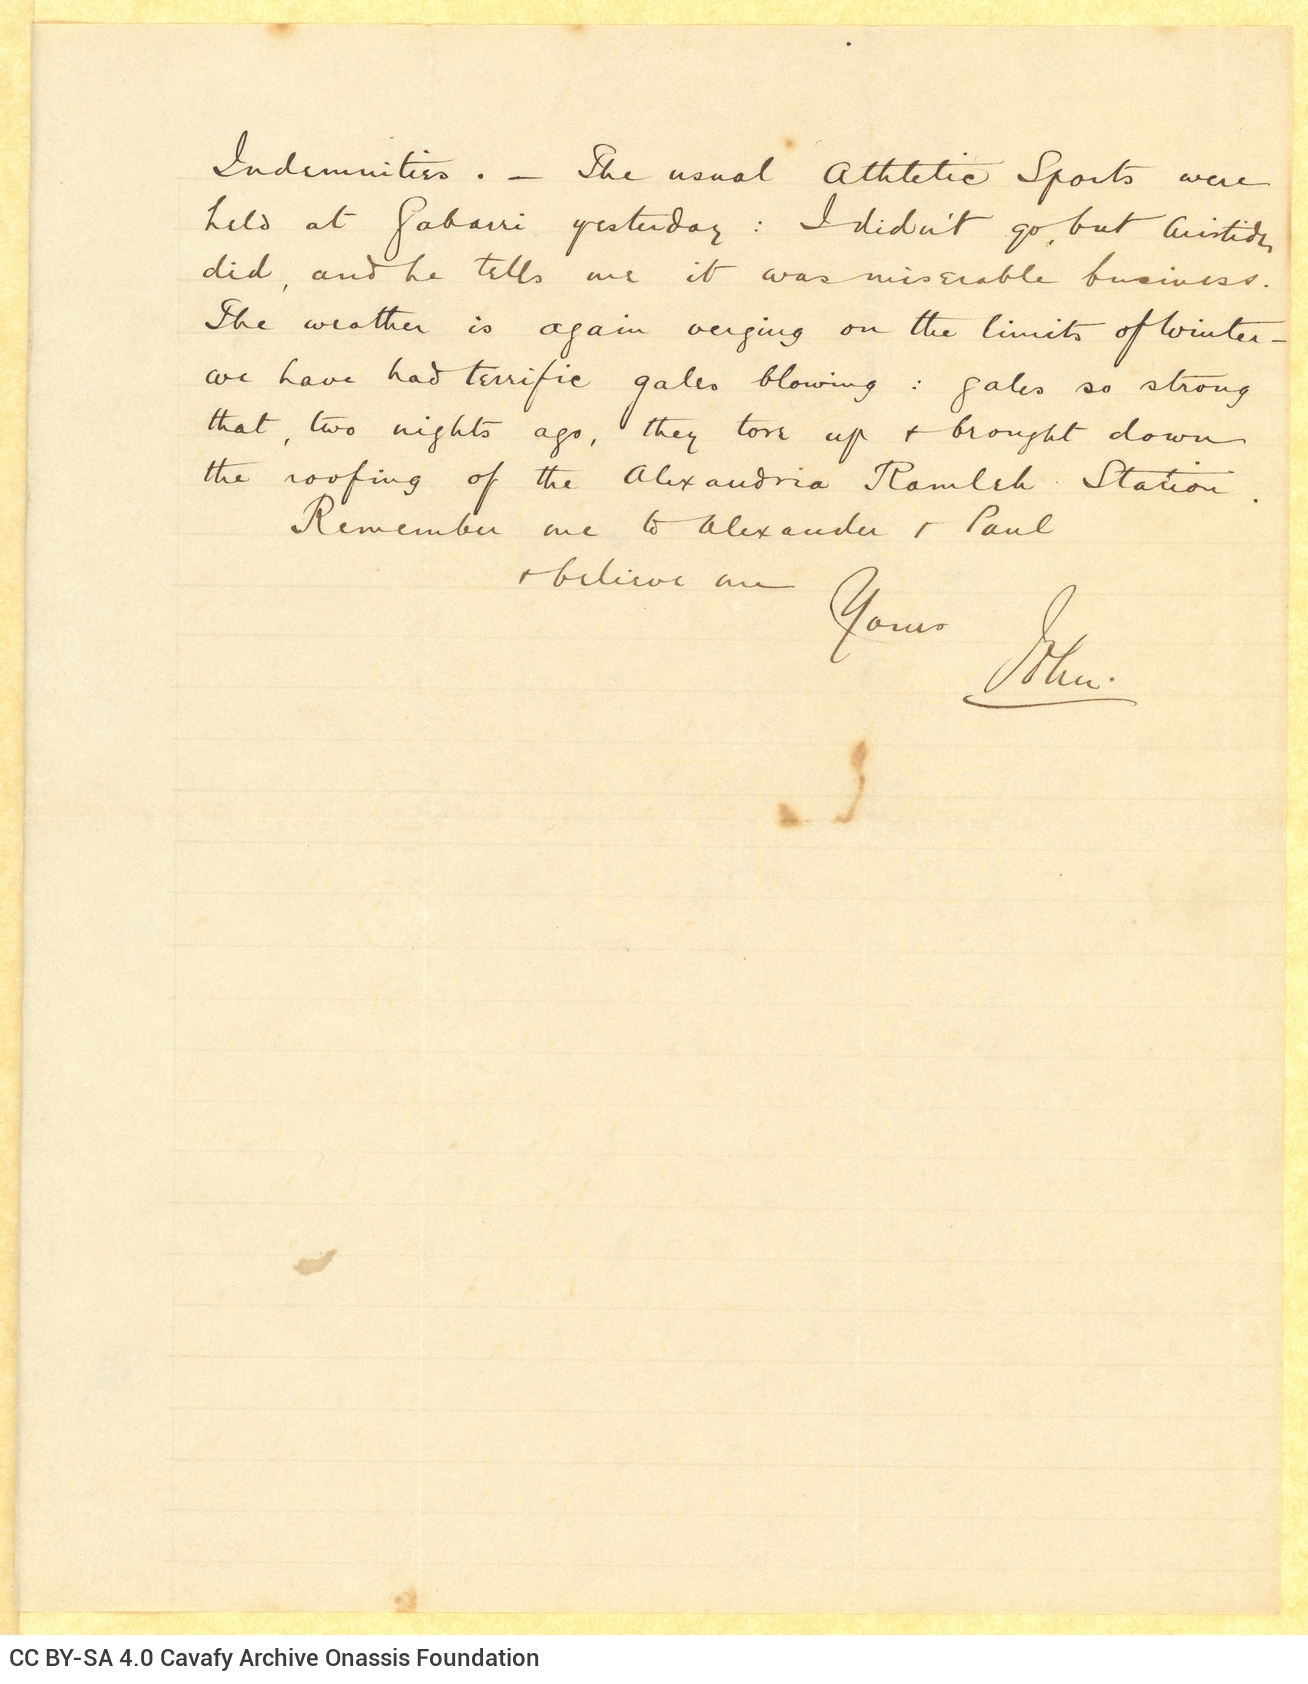 Indemnities. — The usual Athletic Sports were
held at Gabarri yesterday : I didn't go, but Aristides
did, and he tells me it was miserable business.
The weather is again verging on the limits of Winter —
we have had terrific gales blowing : gales so strong
that, two nights ago, they tore up & brought down
the roofing of the Alexandria Ramleh Station.
Remember me to Alexander & Paul
& believe me
Yours
John.
CC BY-SA 4.0 Cavafy Archive Onassis Foundation